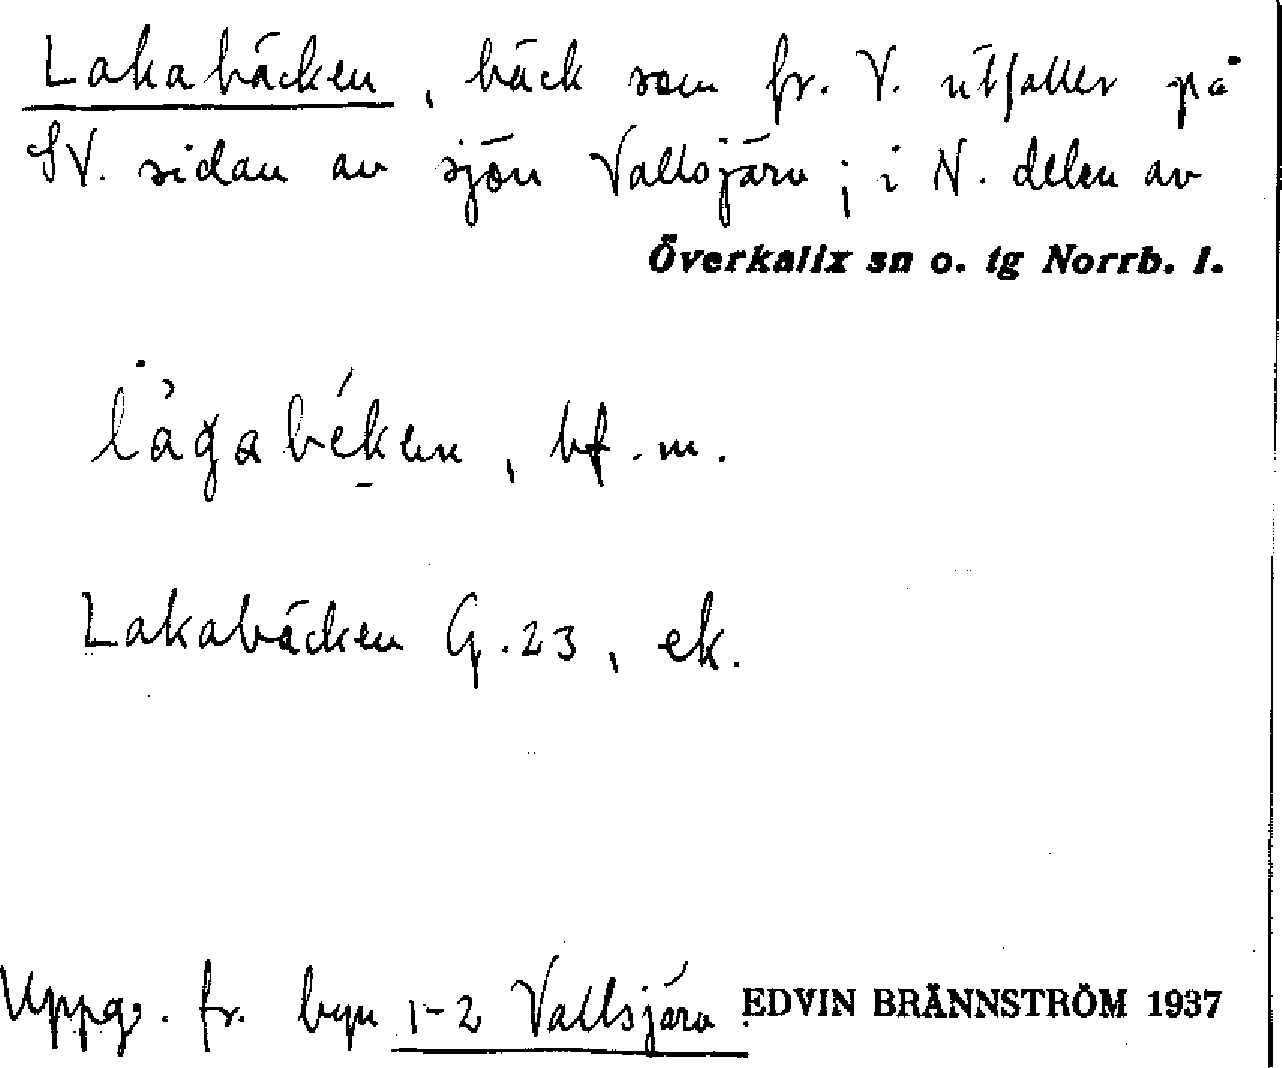 Lakabäcken, bäck som fr. V. utfaller på
SV. sidan av sjön Vallsjärv; i N. delen av
Överkalix sn o. tg Norrb. l.
lågabéken, bf. m.
Lakabäcken G. 23, ek.
Uppg. fr. byn 1-2 Vallsjärv. EDVIN BRÄNNSTRÖM 1937